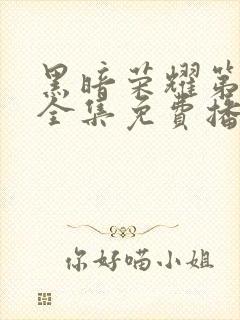 黑暗荣耀第
全集免費播
你好喵小姐